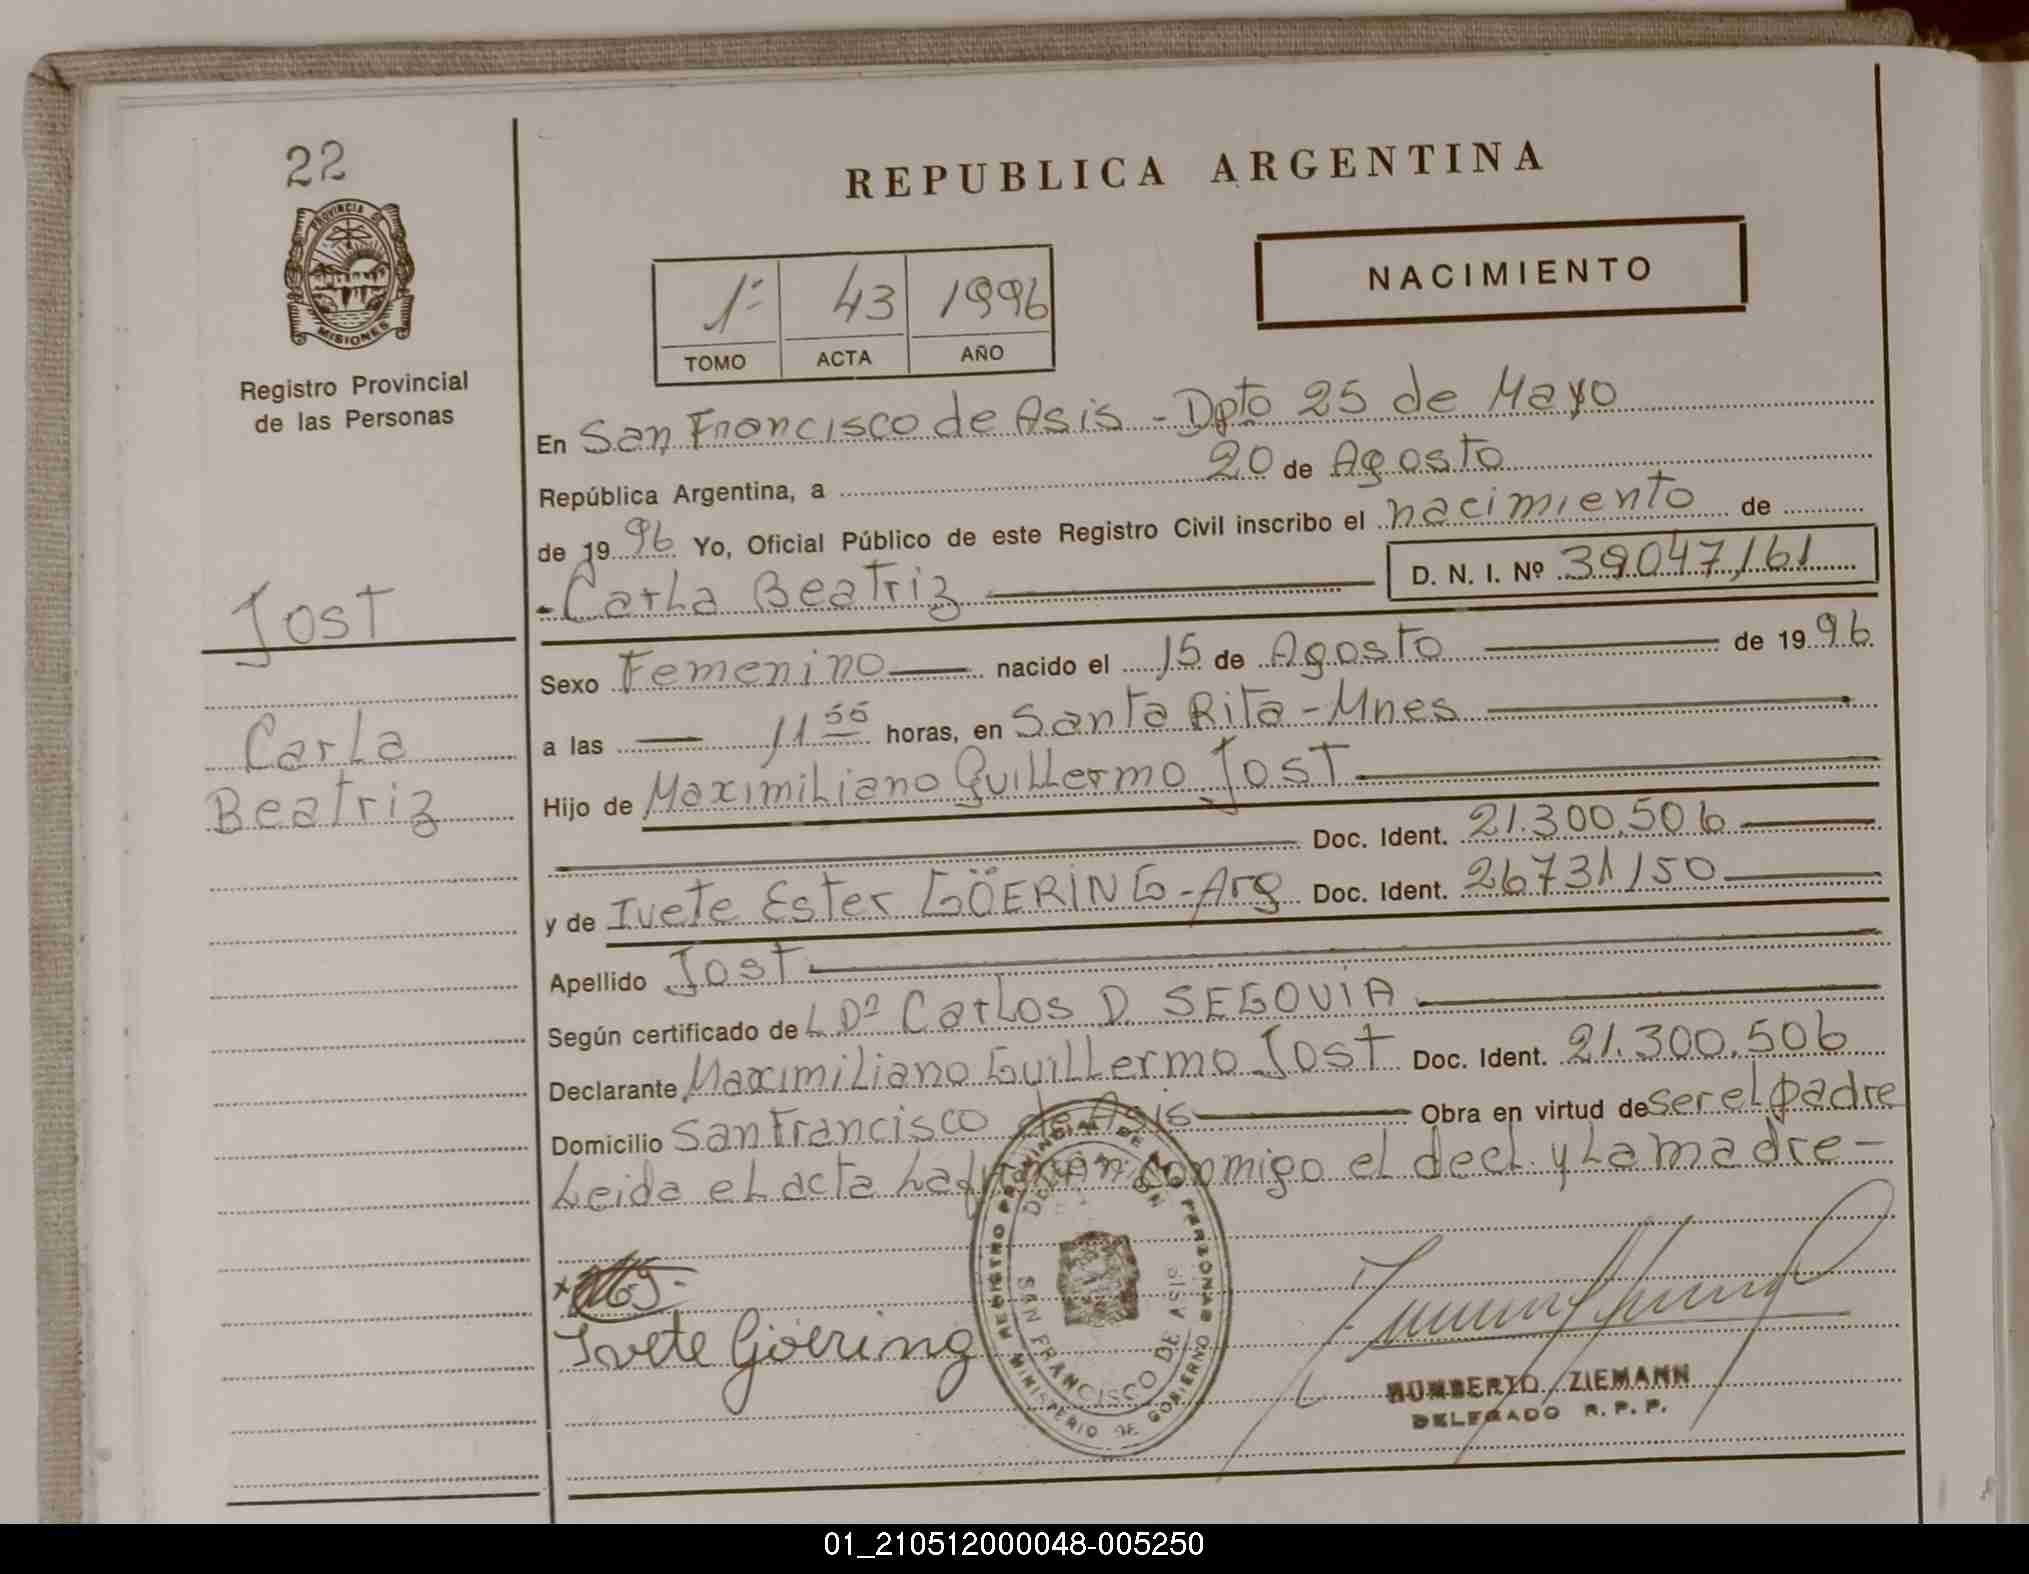 22
PROVINCIA DE
MISIONES
Registro Provincial
de las Personas
Jost
Carla
Beatriz
REPUBLICA ARGENTINA
NACIMIENTO
1º 43 1996
TOMO ACTA AÑO
En San Francisco de Asis - Dpto 25 de Mayo
República Argentina, a 20 de Agosto
de 1996 Yo, Oficial Público de este Registro Civil inscribo el nacimiento de
- Carla Beatriz D. N. I. Nº 39047161
Sexo Femenino nacido el 15 de Agosto de 1996
a las 11 55 horas, en Santa Rita - Mnes
Hijo de Maximiliano Guillermo Jost
Doc. Ident. 21.300.506
y de Ivete Ester GÖERING - Arg Doc. Ident. 26731150
Apellido Jost
Según certificado de L Dº Carlos D. SEGOVIA
Declarante Maximiliano Guillermo Jost Doc. Ident. 21.300.506
Domicilio San Francisco de Asis Obra en virtud de ser el padre
Leida el acta la firman conmigo el decl. y La madre -
Ivete Göering
REGISTRO PROVINCIAL DE LAS PERSONAS
DELEGACION
SAN FRANCISCO DE ASIS
MINISTERIO DE GOBIERNO
HUMBERTO ZIEMANN
DELEGADO R. P. P.
01_210512000048-005250